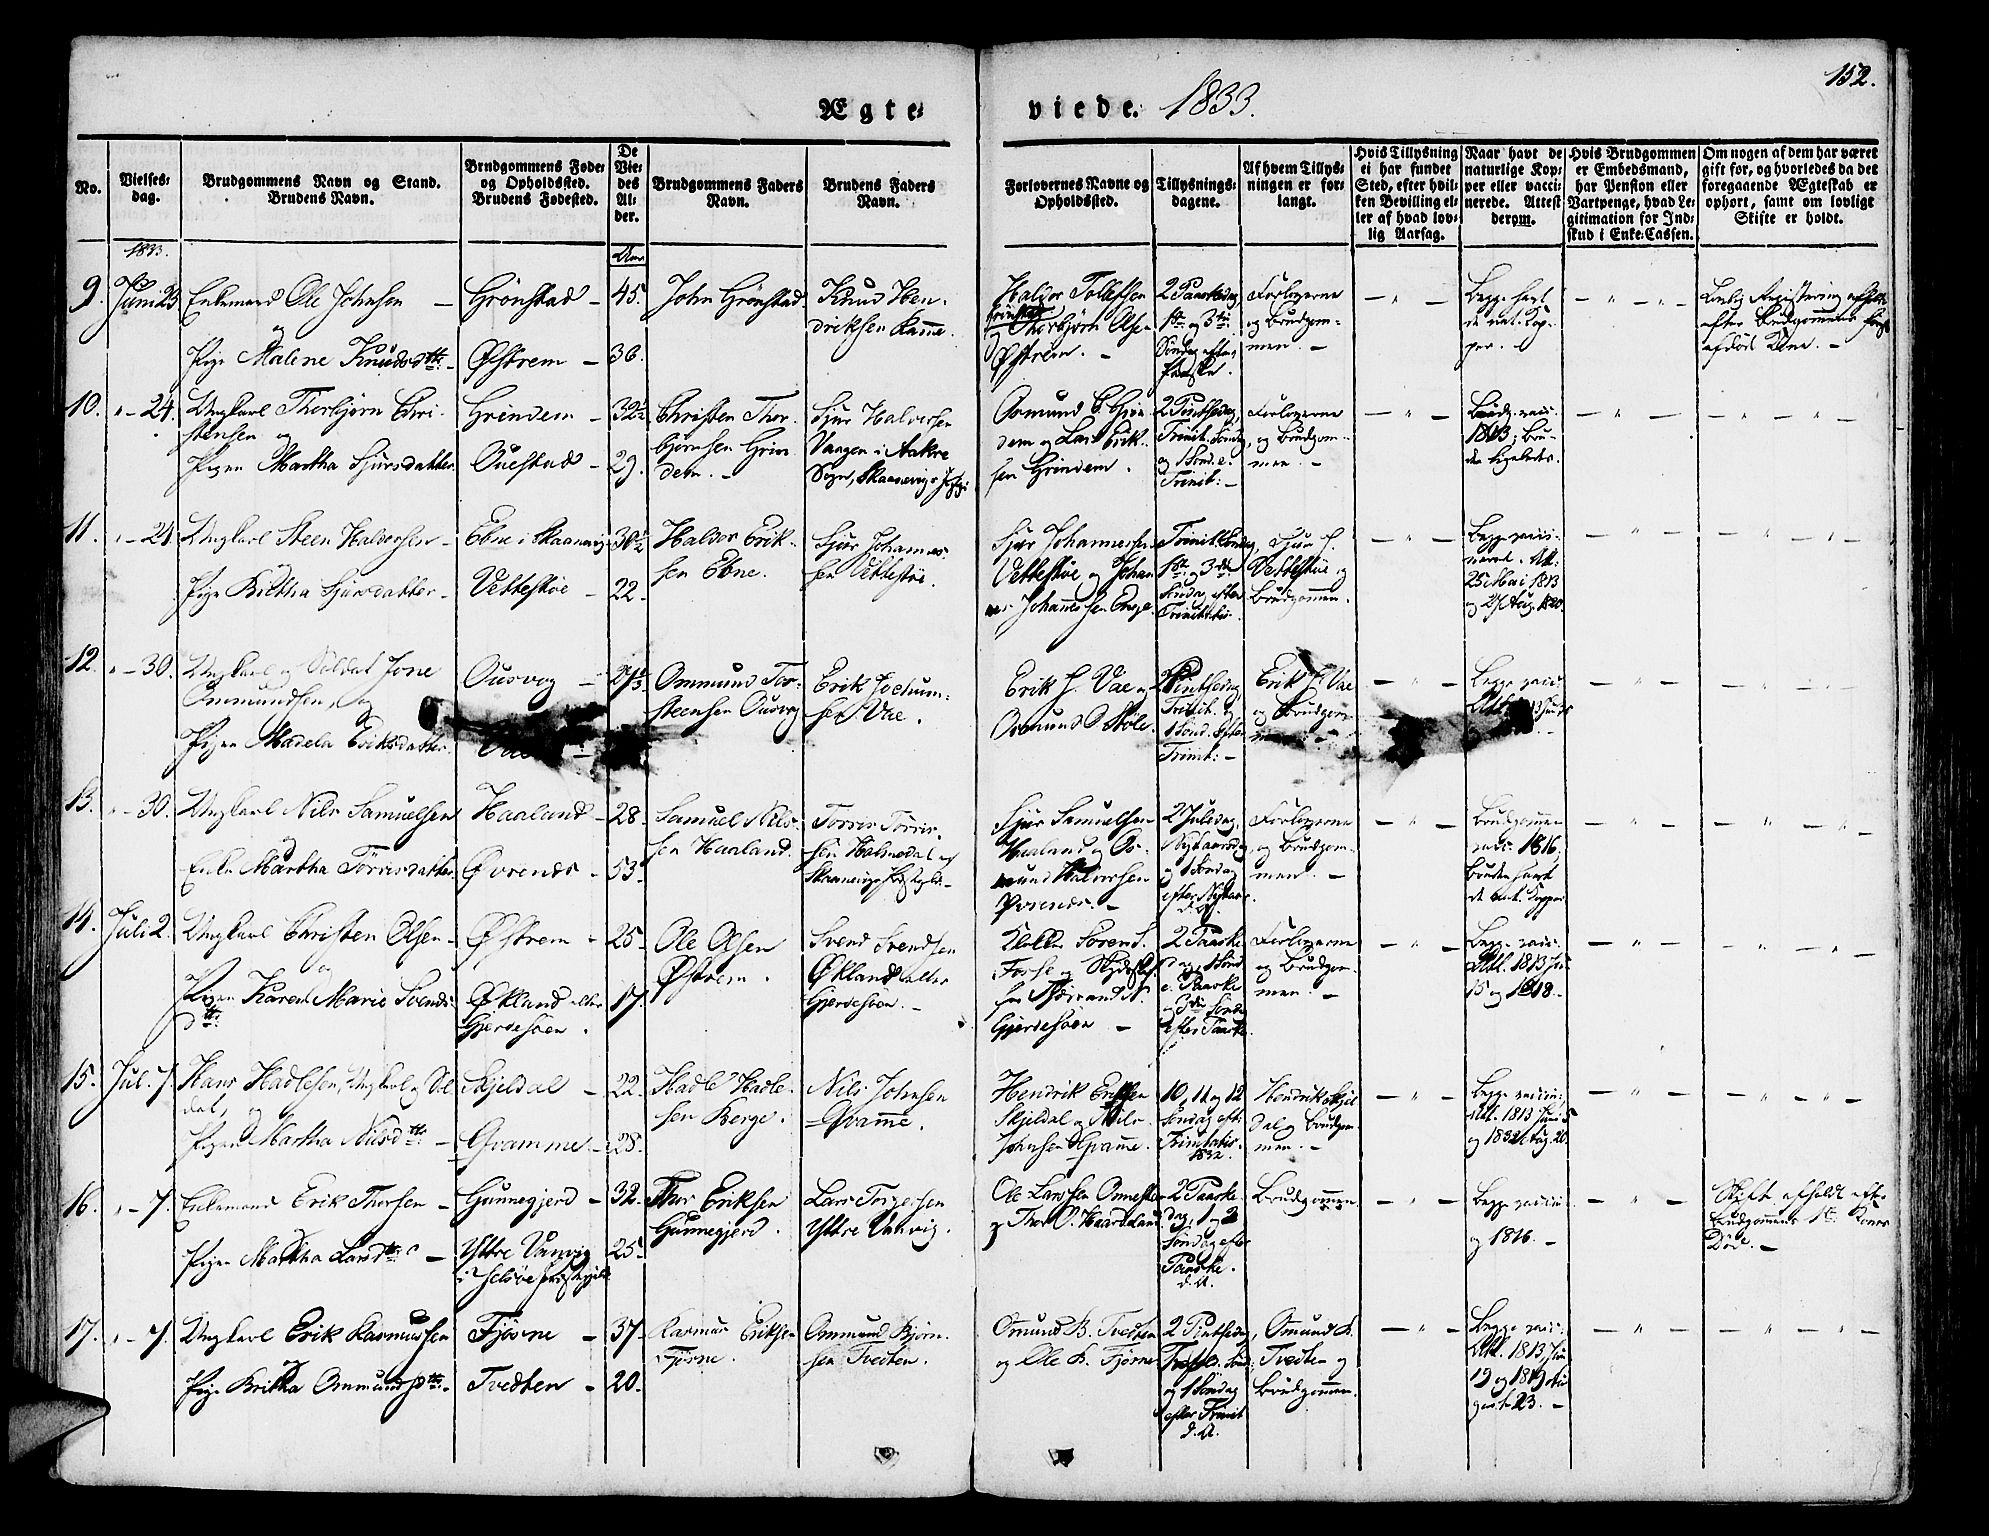 152.
Ægte-
viede. 1833.
No.
Vielses-
dag.
Brudgommens Navn og Stand.
Brudens Navn.
Brudgommens Føde-
og Opholdssted.
Brudens Fødested.
De
Vie-
des
Al-
der.
Brudgommens Faders
Navn.
Brudens Faders
Navn.
Forlovernes Navne og
Opholdssted.
Tillysnings-
dagene.
Af hvem Tillys-
ningen er for-
langt.
Hvis Tillysning
ei har fundet
Sted, efter hvil-
ken Bevilling el-
ler af hvad lov-
lig Aarsag.
Naar havt de
naturlige Kop-
per eller vacci-
nerede. Attest
derom.
Hvis Brudgommen
er Embedsmand,
har Pension eller
Vartpenge, hvad Le-
gitimation for Ind-
skud i Enke-Cassen.
Om nogen af dem har været
gift for, og hvorledes da det
foregaaende Ægteskab er
ophort, samt om lovligt
Skifte er holdt.
1833.
Aar
9. Juni 23 Enkemand Ole Johnsen
og
Pige Malene Knudsdtr.
Grönstad
Østrem
45.
36.
John Grönstad
Knud Hen-
driksen Ramme.
Haldor Tollefsen
Grönstad
og Thorbjörn Olsen
Østrem.
2 Paaskedag
1ste og 3die
Söndag efter
Paaske.
Forloverne
og Brudgom-
men.
Begge havt
de nat. Kop-
per.
Lovlig Registering afholdt
efter Brudgommens
afdöde Kone.
10. " - 24. Ungkarl Thorbjörn Chri-
stensen og
Pigen Martha Sjursdatter
Grindem
Ouestad
32½
29.
Christen Thor-
björnsen Grin-
dem.
Sjur Halvorsen
Vaagen i Aakre
Sogn, Skaanevigs
Osmund C. Grin-
dem og Lars Erik-
sen Grindem.
2 Pintsedag,
Trinit. Söndag
og 1 Sönd. e.
Trinit:
Forloverne
og Brudgom-
men.
Brudg. vacc.
1813; Bru-
den ligeledes.
11. " - 24. Ungkarl Steen Haldorsen
Pige Brittha Sjursdatter
Ebne i Skaanevig
Vettestöe
30½
22
Haldor Erik-
sen Ebne.
Sjur Johannes-
sen Vettestöe.
Sjur Johannessen
Vettestöe og Johan-
nes Johannessen Enge.
Trinit. Söndag,
1ste og 3die
Söndag efter
Trinitatis.
Sjur J.
Vettestöe og
Brudgommen.
Begge vacci-
neret. Att.
25 Mai 1813
og 27 Aug. 1820
12. " - 30. Ungkarl og Soldat Jone
Ommundsen, og
Pigen Madela Eriksdatter
Ousvog
Vae
Ommund Tor-
steensen Ousvog
Erik Jochum-
sen Vae.
Erik J. Vae og
Osmund O. Stöle
2 Pintsedag
Trinit. og
1 Sönd. efter
Trinit:
Erik J. Vae
og Brudgom-
men.
Begge vacc.
13. " - 30. Ungkarl Nils Samuelsen
og
Enke Martha Törrisdatter
Haaland
Øvrenes
28.
53.
Samuel Nils-
sen Haaland.
Torris Törris-
sen Holmedal af
Skaanevigs Præstegjeld
Sjur Samuelsen
Haaland og Os-
mund Halvorsen
Øvrenes.
2 Juledag,
Nytaarsdag
og 1 Söndag
efter Nytaar
d. A.
Forloverne
og Brudgom-
men.
Brudgommen
vacc. 1816,
Bruden havt
de nat. Kopper
14. Juli 2. Ungkarl Christen Olsen
og
Pigen Karen Marie Svends-
dtr.
Østrem
Økland eller
Gjerdesöen.
25
17.
Ole Olsen
Østrem.
Svend Svendsen
Økland eller
Gjerdesöen.
2 Paaske
dag, 1 Sönd
e. Paaske
og 3die Sönd
efter Paaske
Forloverne
og Brudgom-
men.
Begge vacc.
Att. 1813 Jun
15 og 1818.
15. Jul. 7. Hans Hadlesen, Ungkarl og Sol
dat, og
Pigen Martha Nilsdtr.
Skjeldal
Qvamme
22.
28.
Hadle Hadle-
sen Berge.
Nils Johnsen
Qvamme.
Hendrik Eriksen
Skjeldal og Nils
Johnsen Qvamme.
10, 11 og 12
Söndag eft:
Trinitatis.
1832.
Hendrik Skjel
dal og Brudgom-
men.
Begge vaccin:
Att. 1813 Juni 5
og 1832 Aug. 20.
16. " - 7. Enkemand Erik Thorsen
og
Pigen Martha Larsdtr.
Gunnegjerd
Yttre Vansvig
i Jelsöe Præstegjeld
32.
25.
Thor Eriksen
Gunnegjerd.
Lars Torgersen
Yttre Vansvig.
Ole Larssen
og Thor O. Haaraland
2 Paaske
dag, 1 og 2
Söndag efter
Paaske.
d. A.
Brudgommen.
Begge vaccin:
og 1816.
Skift afholdt efter
Brudgommens 1ste Kones
Död.
17. " - 7. Ungkarl Erik Rasmussen
og
Pige Britha Ommundsdtr.
Fjösne
Tvedten
37.
20.
Rasmus Eriksen
Fjösne.
Ommund Björn-
sen Tvedten.
Omund B. Tvedten
og Ole R. Fjösne
2 Pintsedag,
Trinit. Sönd:
og 1 Söndag
efter Trinit
d. A.
Omund B.
Tvedten og
Brudgommen.
Begge vacc:
Att. 1813 Jun
19 og 1819 Au
gust 23.